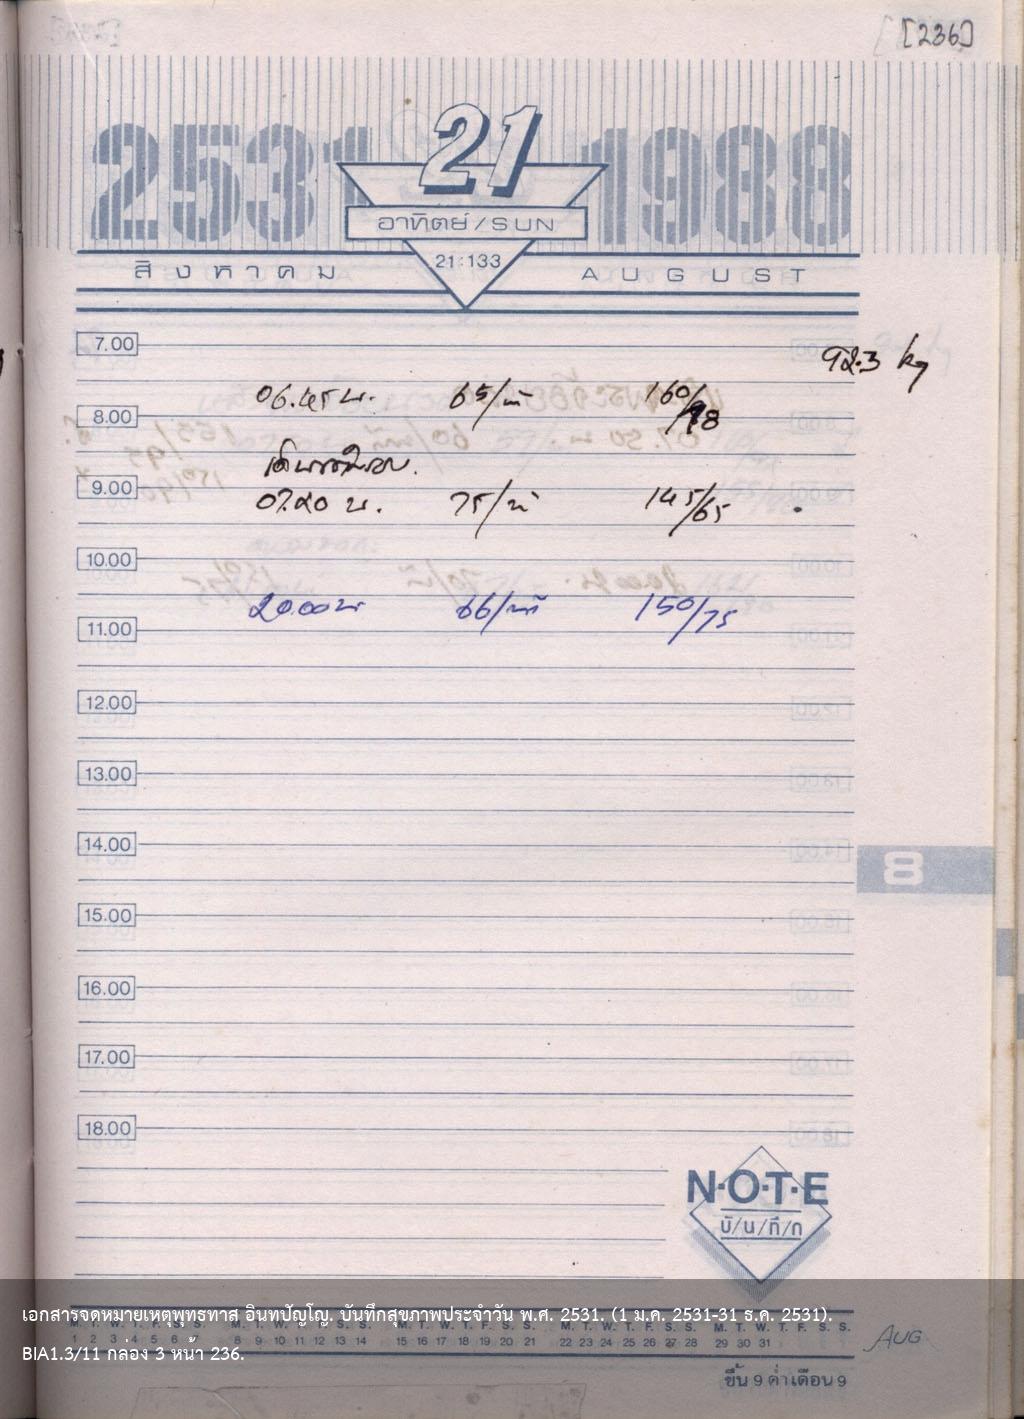 [236]
2531 21 1988
อาทิตย์/SUN
21:133
สิงหาคม AUGUST
7.00
92.3 kg
06.45 น. 65/น 160/98
8.00
9.00
07.20 น. 75/น 145/65
10.00
20.00 น 66/นาที 150/75
11.00
12.00
13.00
14.00
8
15.00
16.00
17.00
18.00
N·O·T·E
บั/น/ทึ/ก
เอกสารจดหมายเหตุพุทธทาส อินทปัญโญ. บันทึกสุขภาพประจำวัน พ.ศ. 2531. (1 ม.ค. 2531-31 ธ.ค. 2531).
M. T. W. T. F. S. S. M. T. W. T. F. S. S. M. T. W. T. F. S. S. M. T. W. T. F. S. S. M. T. W. T. F. S. S.
1 2 3 4 5 6 7 8 9 10 11 12 13 14 15 16 17 18 19 20 21 22 23 24 25 26 27 28 29 30 31
AUG
BIA1.3/11 กล่อง 3 หน้า 236.
ขึ้น 9 ค่ำ เดือน 9